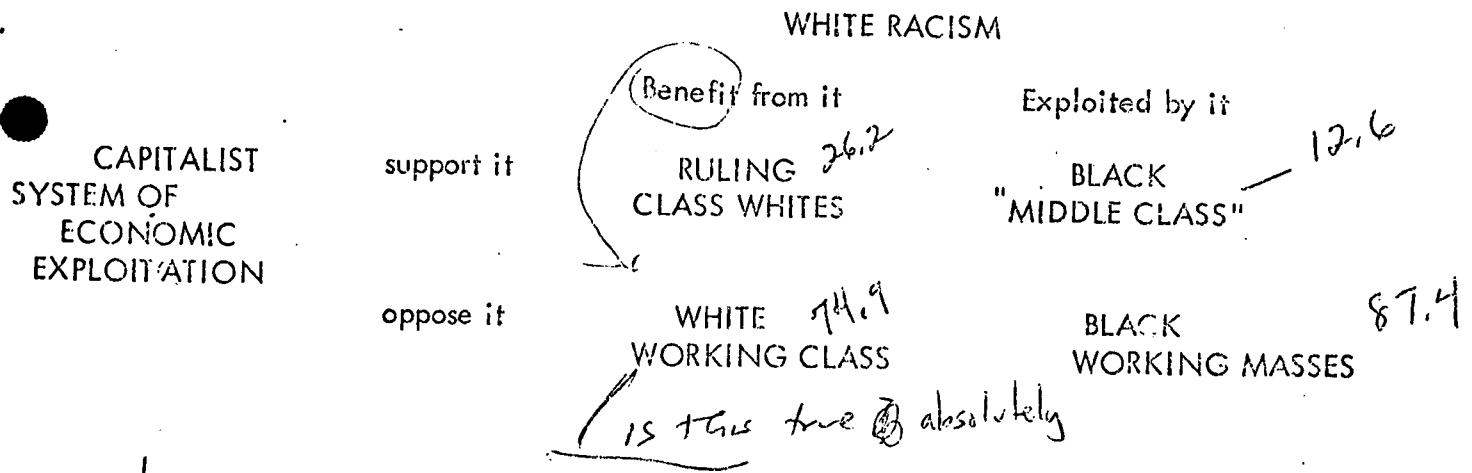 WHITE RACISM
Benefit from it
Exploited by it
CAPITALIST
SYSTEM OF
ECONOMIC
EXPLOITATION
support it
RULING 26.2
CLASS WHITES
BLACK
"MIDDLE CLASS"
12.6
oppose it
WHITE 74.9
WORKING CLASS
BLACK
WORKING MASSES
87.4
is this true absolutely